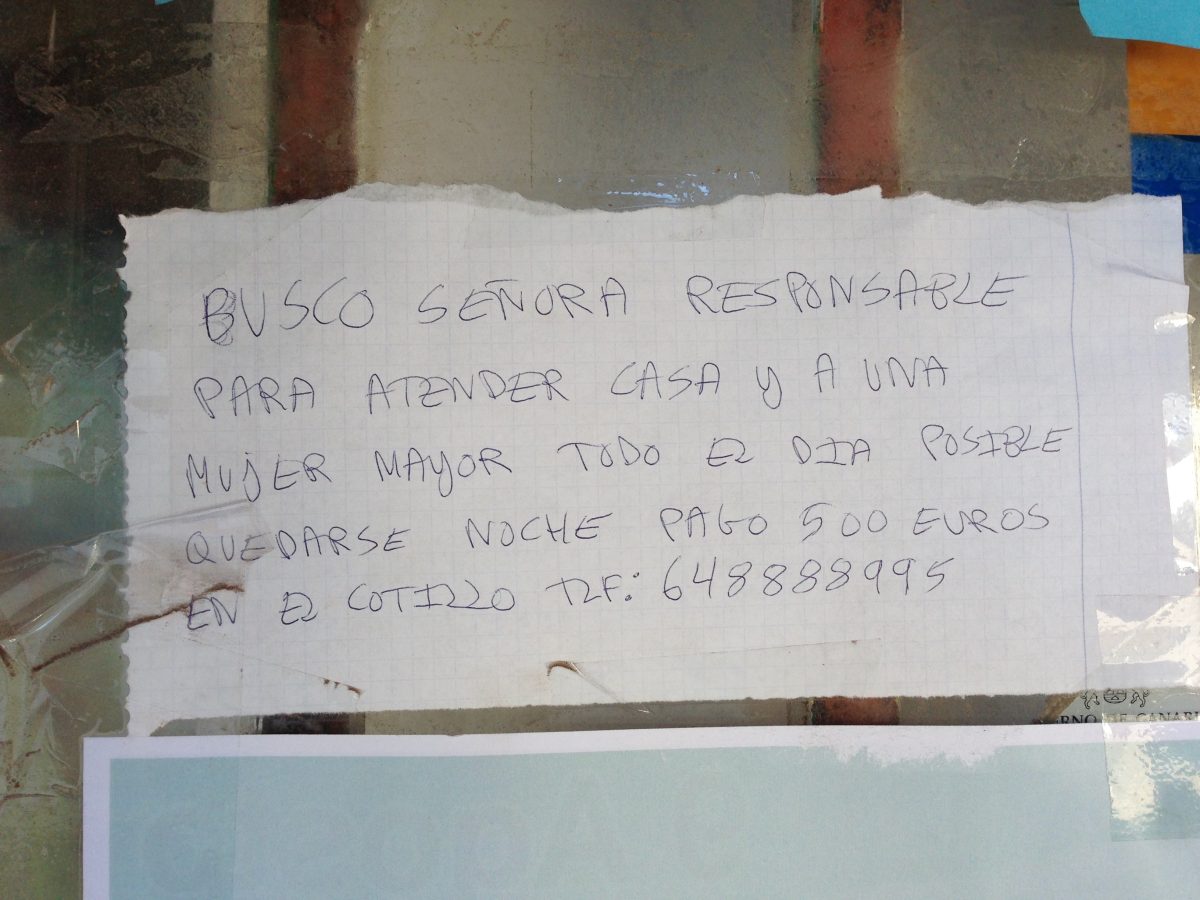 BUSCO SEÑORA RESPONSABLE
PARA ATENDER CASA Y A UNA
MUJER MAYOR TODO EL DIA POSIBLE
QUEDARSE NOCHE PAGO 500 EUROS
EN EL COTILLO TLF: 648888995
DE CANARI